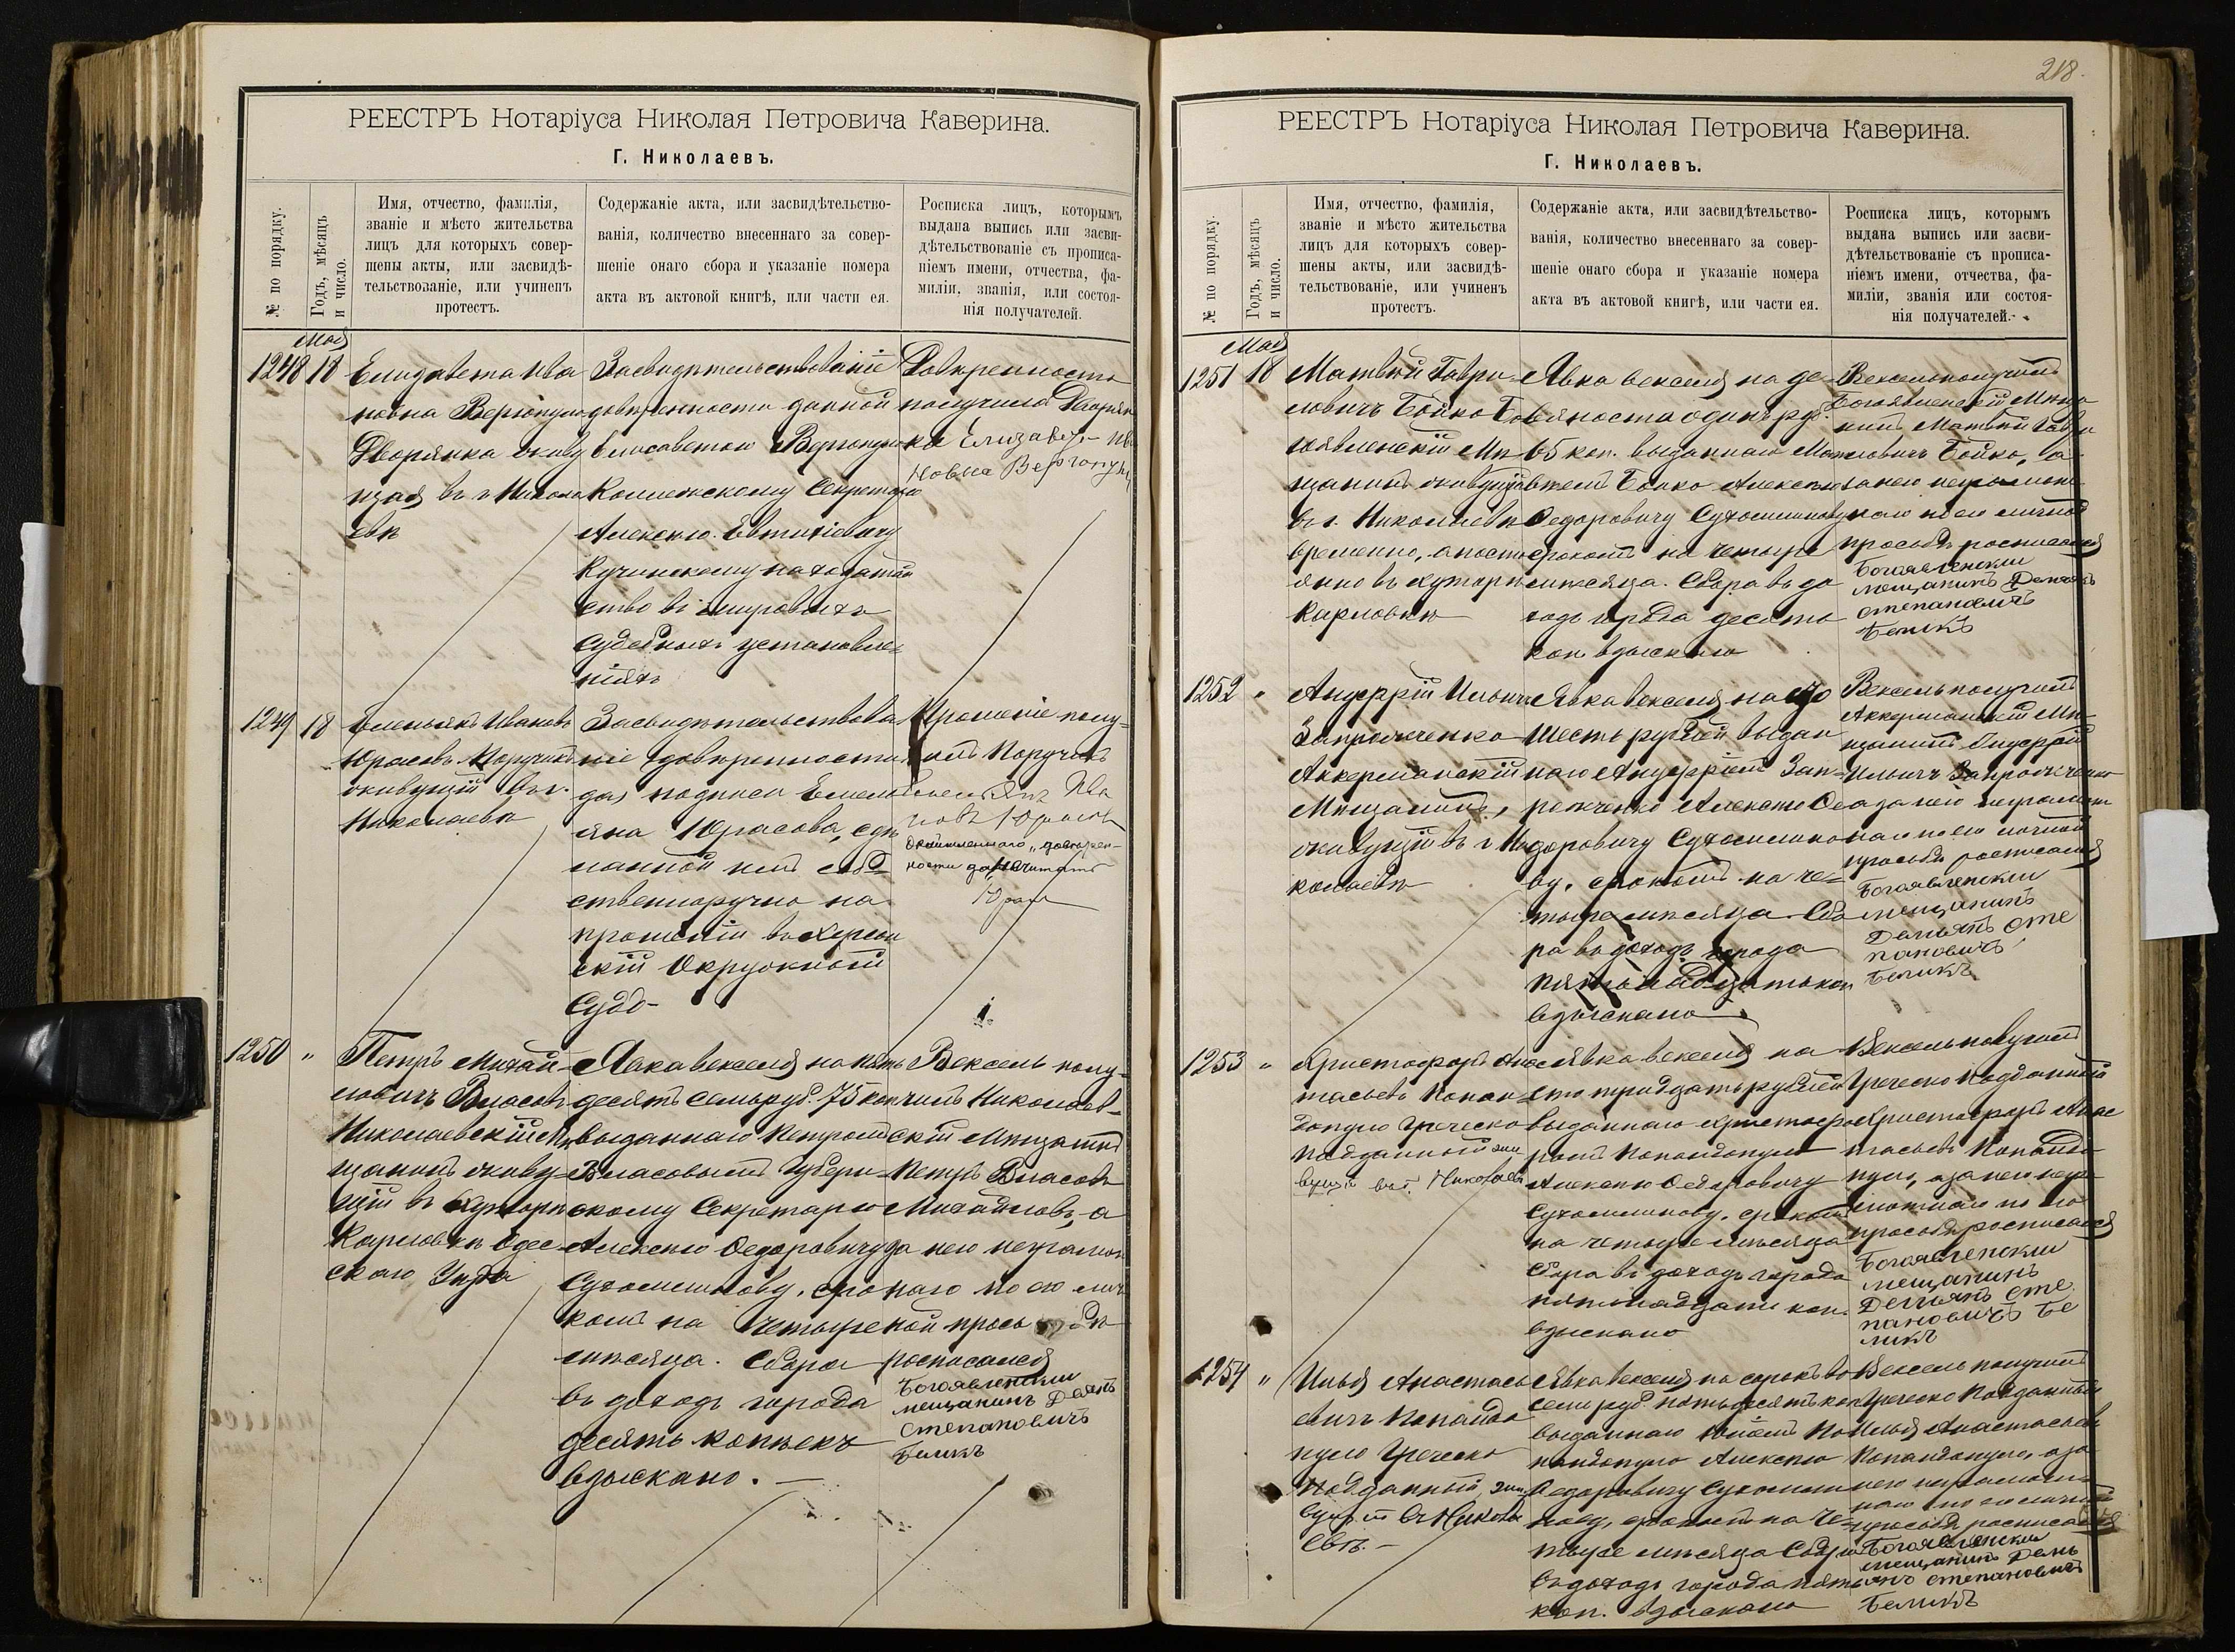 РЕЕСТРЪ Нотаріуса Николая Петровича Каверина.
Г. Николаевъ.
№ по порядку.
Годъ, мѣсяцъ
и число.
Имя, отчество, фамилія,
званіе и мѣсто жительства
лицъ для которыхъ совер-
шены акты, или засвидѣ-
тельствованіе, или учиненъ
протестъ.
Содержаніе акта, или засвидѣтельство-
ванія, количество внесеннаго за совер-
шеніе онаго сбора и указаніе номера
акта въ актовой книгѣ, или части ея.
Росписка лицъ, которымъ
выдана выпись или засви-
дѣтельствованіе съ прописа-
ніемъ имени, отчества, фа-
миліи, званія, или состоя-
нія получателей.
Мая
1248 18
Елизавета Ива
новна Вергопуло
Дворянка живу
щая въ г. Никола
евѣ
Засвидѣтельствованіе
довѣренности данной
Елисаветою Вергопуло
Коллежскому Секретарю
Алексѣю Евтихіевичу
Кучинскому на ходатай
ство въ мировыхъ
Судебныхъ установле-
ніяхъ
Довѣренность
получила Дворян
ка Елизавета Ива
новна Вергопуло
1249 18
Емельянъ Ивановъ
Юрасовъ Поручикъ
живущій въ г.
Николаевѣ
Засвидѣтельствова
ніе довѣренности
да, подписи Емель
яна Юрасова, сдѣ
ланной имъ соб
ственноручно на
прошеніи въ Херсон
скій Окружный
Судъ-
Прошеніе полу-
чилъ Поручикъ
Емельянъ Ива
новъ Юрасовъ
"довѣрен-
ности" не читать
Юрасовъ
1250 "
Петръ Михай-
ловичъ Власовъ
Николаевскій Мѣ
щанинъ живу-
щій въ хуторѣ
Карловкѣ Одес-
скаго Уѣзда
Явка векселя на пять
десятъ семь руб. 75 коп
выданнаго Петромъ
Власовымъ Губерн-
скому Секретарю
Алексѣю Ѳедоровичу
Сухомлинову, сро
комъ на четыре
мѣсяца. Сбора
въ доходъ города
десять копѣекъ
взыскано. —
Вексель полу-
чилъ Николаев-
скій Мѣщанинъ
Петръ Власовъ
Михайловъ, а
за него неграмот
наго по его лич
ной прось бѣ
росписался
Богоявленскии
мещанинъ Демянъ
Степановичъ
Беликъ
218.
РЕЕСТРЪ Нотаріуса Николая Петровича Каверина.
Г. Николаевъ.
№ по порядку.
Годъ, мѣсяцъ
и число.
Имя, отчество, фамилія,
званіе и мѣсто жительства
лицъ для которыхъ совер-
шены акты, или засвидѣ-
тельствованіе, или учиненъ
протестъ.
Содержаніе акта, или засвидѣтельство-
ванія, количество внесеннаго за совер-
шеніе онаго сбора и указаніе номера
акта въ актовой книгѣ, или части ея.
Росписка лицъ, которымъ
выдана выпись или засви-
дѣтельствованіе съ прописа-
ніемъ имени, отчества, фа-
миліи, званія или состоя-
нія получателей.
Мая
1251 18
Матвѣй Гаври-
ловичъ Бойко Бо
гоявленскій Мѣ
щанинъ живущій
въ г. Николаевѣ
временно, а посто
янно въ хуторѣ
Карловкѣ
Явка векселя на де-
вяносто одинъ руб
65 коп. выданнаго Мат
вѣемъ Бойко Алексѣю
Ѳедоровичу Сухомлинову
срокомъ на четыре
мѣсяца. Сбора въ до
ходъ города десять
коп. взыскано
Вексель получилъ
Богоявленскій Мѣща
нинъ Матвѣй Гаври
ловичъ Бойко, а
за него неграмот
наго по его личной
просьбѣ росписался
Богоявленскии
мещанинъ Демянъ
степановичъ
Беликъ
1252 "
Андрей Ильичъ
Аккерманскій
Мѣщанинъ,
живущій въ г. Ни
колаевѣ
Явка векселя на сто
шесть рублей выдан
наго
Алексѣю Ѳе
доровичу Сухомлино
ву, срокомъ на че-
тыре мѣсяца. Сбо
ра въ доходъ города
пятнадцать коп
взыскано
Вексель получилъ
Аккерманскій Мѣ-
щанинъ
а за него неграмот
наго по его личной
просьбѣ росписался
Богоявленскии
мещанинъ
Демянъ сте
пановичъ
Беликъ
1253 "
Христофоръ Анас
тасьевъ Папан
допуло Греческо
подданный жи
вущій въ г. Николаевѣ
Явка векселя на
сто тридцать рублей
выданнаго Христофо
ромъ Папандопуло
Алексѣю Ѳедоровичу
Сухомлинову, срокомъ
на четыре мѣсяца
Сбора въ доходъ города
пятнадцать коп.
взыскано
Вексель получилъ
Греческо Подданный
Христофоръ Анас
тасьевъ Папандо
пуло, а за него негра
мотнаго по его
просьбѣ росписался
Богоявленскии
мещанинъ
Демянъ сте
пановичъ Бе
ликъ
1254 "
Илья Анастась
евичъ Папандо
пуло Греческо
Подданный, жи
вущій въ Никола
евѣ. —
Явка векселя на сорокъ во
семь руб. пятьдесятъ коп
выданнаго Ильей Па
пандопуло Алексѣю
Ѳедоровичу Сухомли
нову, срокомъ на че-
тыре мѣсяца Сбора
въ доходъ города пять
коп. взыскано
Вексель получилъ
Греческо Подданный
Илья Анастасьевъ
Папандопуло, а за
него неграмот-
наго по его личной
просьбѣ росписался
Богоявленскии
мещанинъ Демь
янъ степановичъ
Беликъ